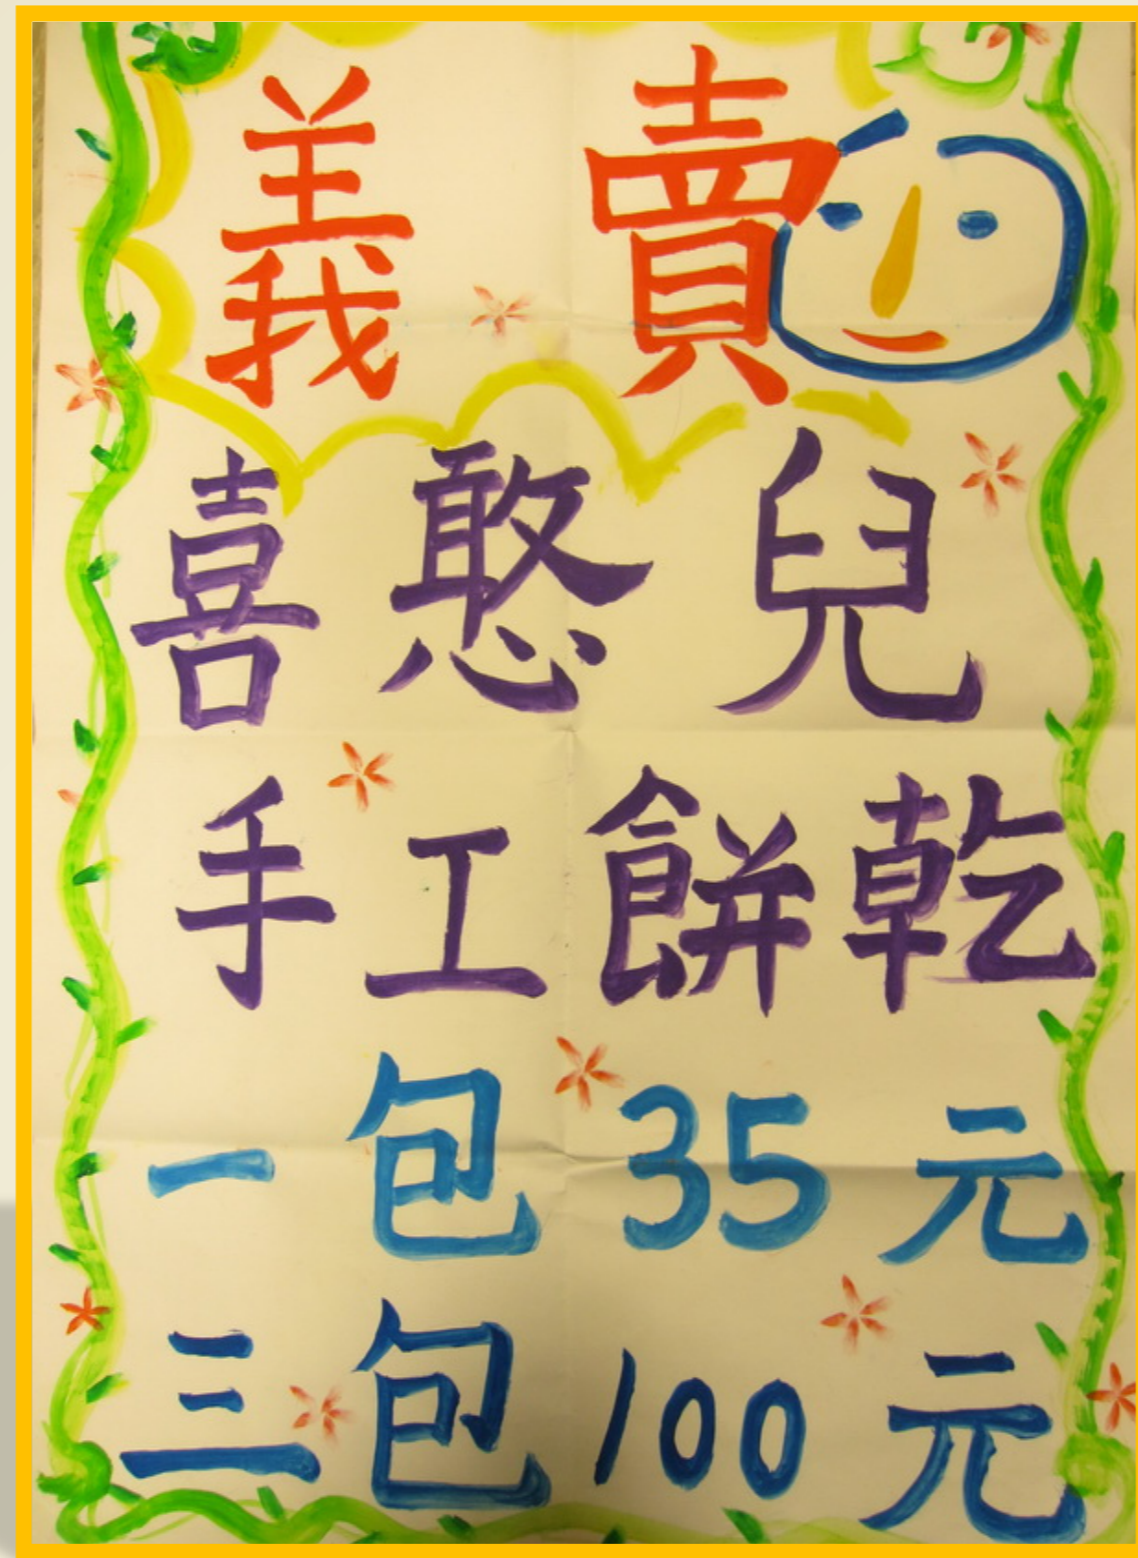 義賣
喜憨兒
手工餅乾
一包35元
三包100元